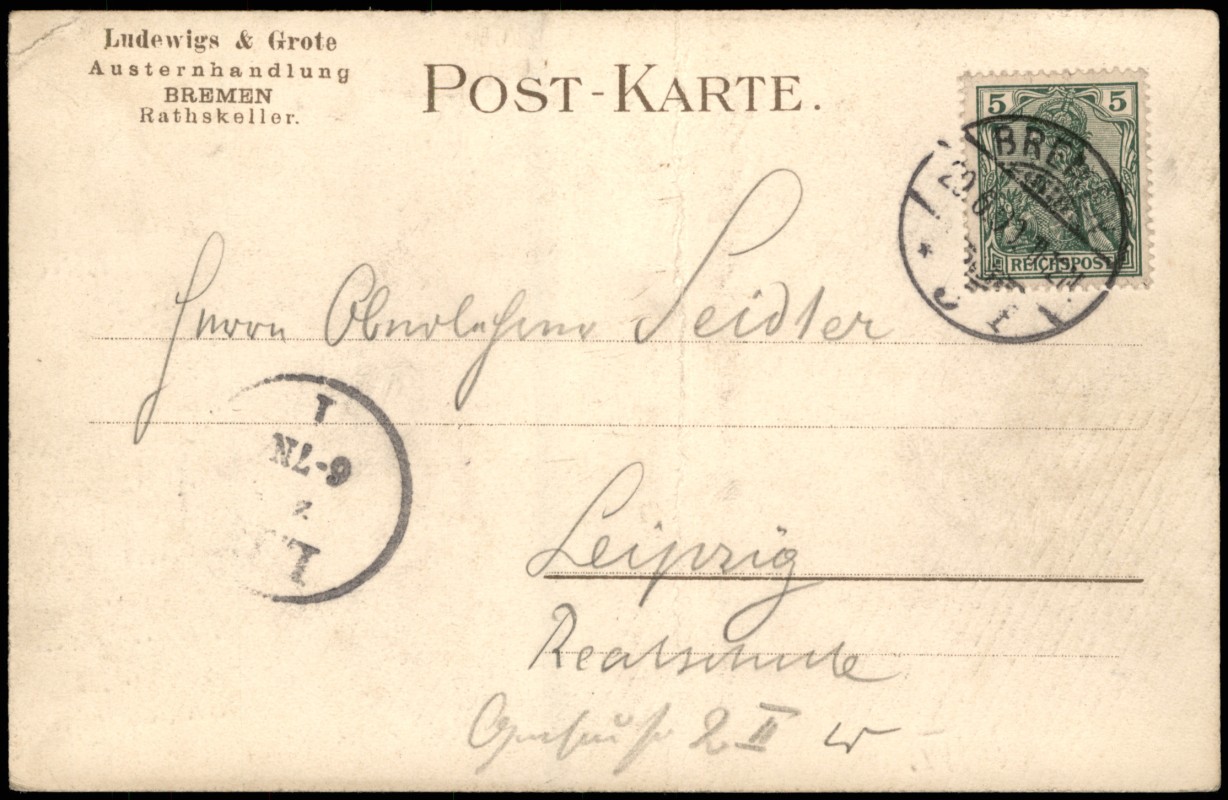 Ludewigs & Grote
Austernhandlung
BREMEN
Rathskeller.
POST-KARTE.
5 5
REICHSPOST
BREMEN
* 1
Herrn Oberlehrer Seidler
1
6-7N
L
Leipzig
Realschule
2 II